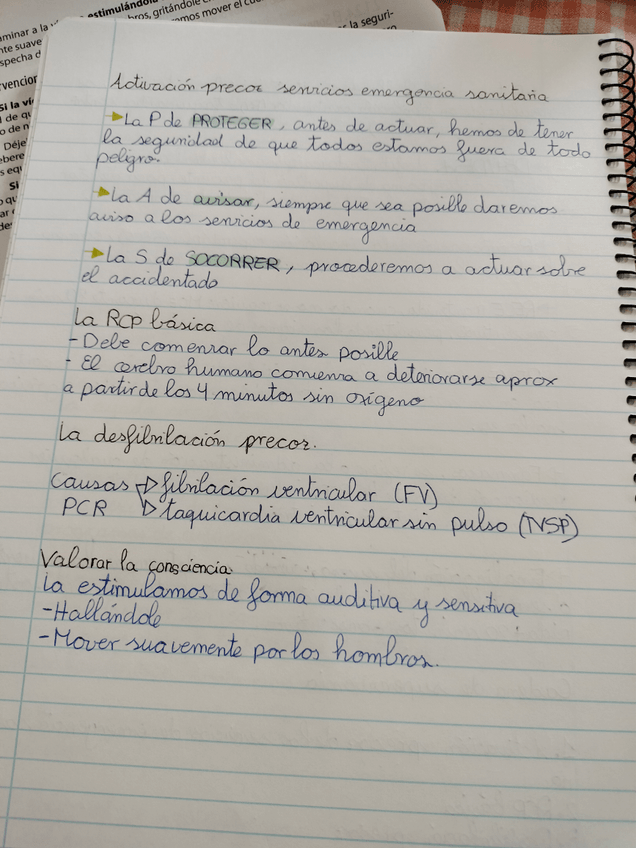 aminar a la
estimulándol
bros, gritándole
nte suave
mos mover el
la seguri-
specha d
vencion
Si la ví
l de qu
o de n
Déje
ebere
s equ
Si
Activación precoz servicios emergencia sanitaria
La P de PROTEGER, antes de actuar, hemos de tener
la seguridad de que todos estamos fuera de todo
peligro.
La A de avisar, siempre que sea posible daremos
aviso a los servicios de emergencia
La S de SOCORRER, procederemos a actuar sobre
el accidentado
La RCP básica
- Debe comenzar lo antes posible
- El cerebro humano comienza a deteriorarse aprox
a partir de los 4 minutos sin oxígeno
La desfibrilación precoz.
Causas → fibrilación ventricular (FV)
PCR → taquicardia ventricular sin pulso (TVSP)
Valorar la consciencia.
La estimulamos de forma auditiva y sensitiva
- Hallándole
- Mover suavemente por los hombros.